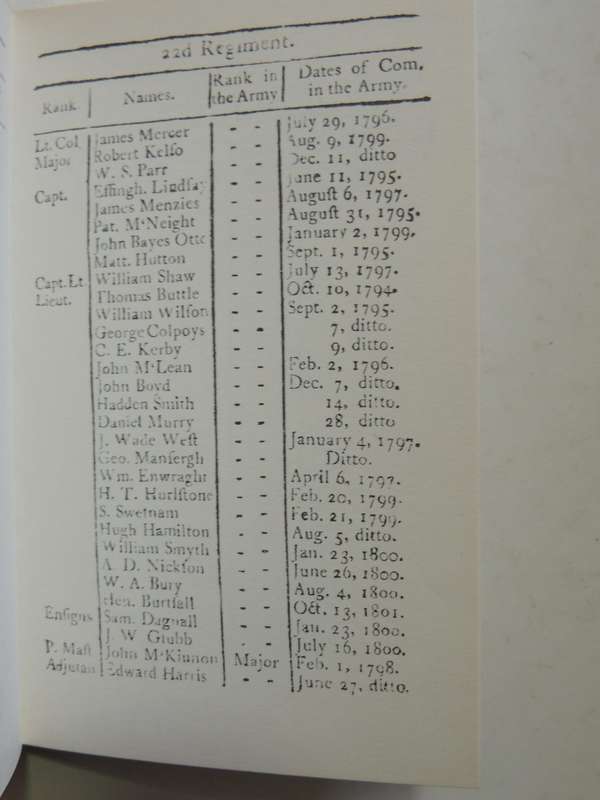 22d Regiment.
Rank Names. Rank in the Army Dates of Com. in the Army.
Lt. Col James Mercer - - July 29, 1796.
Major Robert Kelſo - - Aug. 9, 1799.
W. S. Parr - - Dec. 11, ditto
Capt. Effingh. Lindſay - - June 11, 1795.
James Menzies - - Auguſt 6, 1797.
Pat. M'Neight - - Auguſt 31, 1795.
John Bayes Otte - - January 2, 1799.
Matt. Hutton - - Sept. 1, 1795.
Capt. Lt William Shaw - - July 13, 1797.
Lieut. Thomas Buttle - - Oct. 10, 1794.
William Wilſon - - Sept. 2, 1795.
George Colpoys - - 7, ditto.
C. E. Kerby - - 9, ditto.
John M'Lean - - Feb. 2, 1796.
John Boyd - - Dec. 7, ditto.
Hadden Smith - - 14, ditto.
Daniel Murry - - 28, ditto
J. Wade Weſt - - January 4, 1797.
Geo. Manſergh - - Ditto.
Wm. Enwraght - - April 6, 1797.
H. T. Hurlſtone - - Feb. 20, 1799.
S. Swetnam - - Feb. 21, 1799.
Hugh Hamilton - - Aug. 5, ditto.
William Smyth - - Jan. 23, 1800.
A. D. Nickſon - - June 26, 1800.
W. A. Bury - - Aug. 4, 1800.
Hen. Burtſall - - Oct. 13, 1801.
Enſigns Sam. Dagnall - - Jan. 23, 1800.
J. W. Grubb - - July 16, 1800.
P. Maſt John McKinnon Major Feb. 1, 1798.
Adjutan Edward Harris - - June 27, ditto.